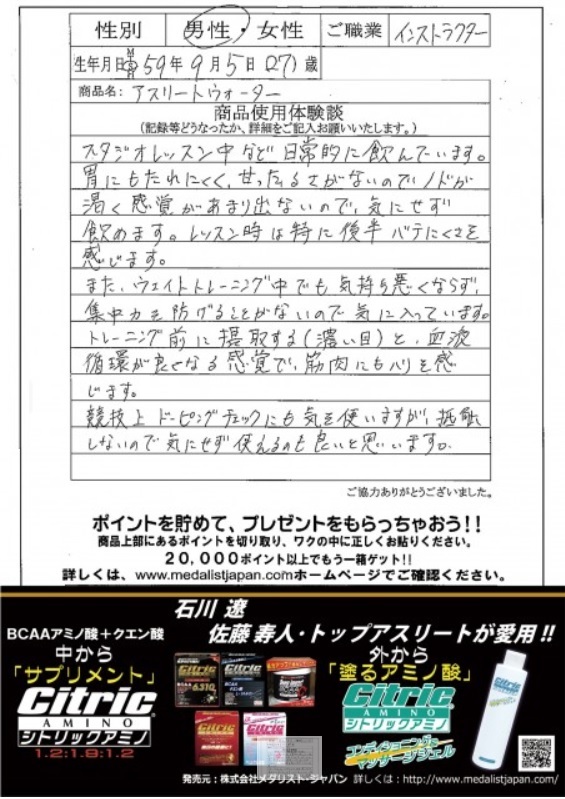 性別 男性・女性 ご職業 インストラクター
生年月日 59年9月5日(27)歳
商品名: アスリートウォーター
商品使用体験談
(記録等どうなったか、詳細をご記入お願いいたします。)
スタジオレッスン中など日常的に飲んでいます。
胃にもたれにくく、甘ったるさがないのでノドが
渇く感覚があまり出ないので、気にせず
飲めます。レッスン時は特に後半バテにくさを
感じます。
また、ウェイトトレーニング中でも気持ち悪くならず、
集中力を防げることがないので気に入っています。
トレーニング前に摂取する(濃い目)と、血液
循環が良くなる感覚で、筋肉にもハリを感
じます。
競技上ドーピングチェックにも気を使いますが、抵触
しないので気にせず使えるのも良いと思います。
ご協力ありがとうございました。
ポイントを貯めて、プレゼントをもらっちゃおう!!
商品上部にあるポイントを切り取り、ワクの中に正しくお貼りください。
20,000ポイント以上でもう一箱ゲット!!
詳しくは、www.medalistjapan.comホームページでご確認ください。
石川 遼
佐藤 寿人・トップアスリートが愛用!!
BCAAアミノ酸+クエン酸
中から
「サプリメント」
Citric
AMINO
シトリックアミノ
1.2:1.9:1.2
外から
「塗るアミノ酸」
Citric
AMINO
シトリックアミノ
コンディショニング&
マッサージジェル
発売元:株式会社メダリスト・ジャパン 詳しくは:http://www.medalistjapan.com/